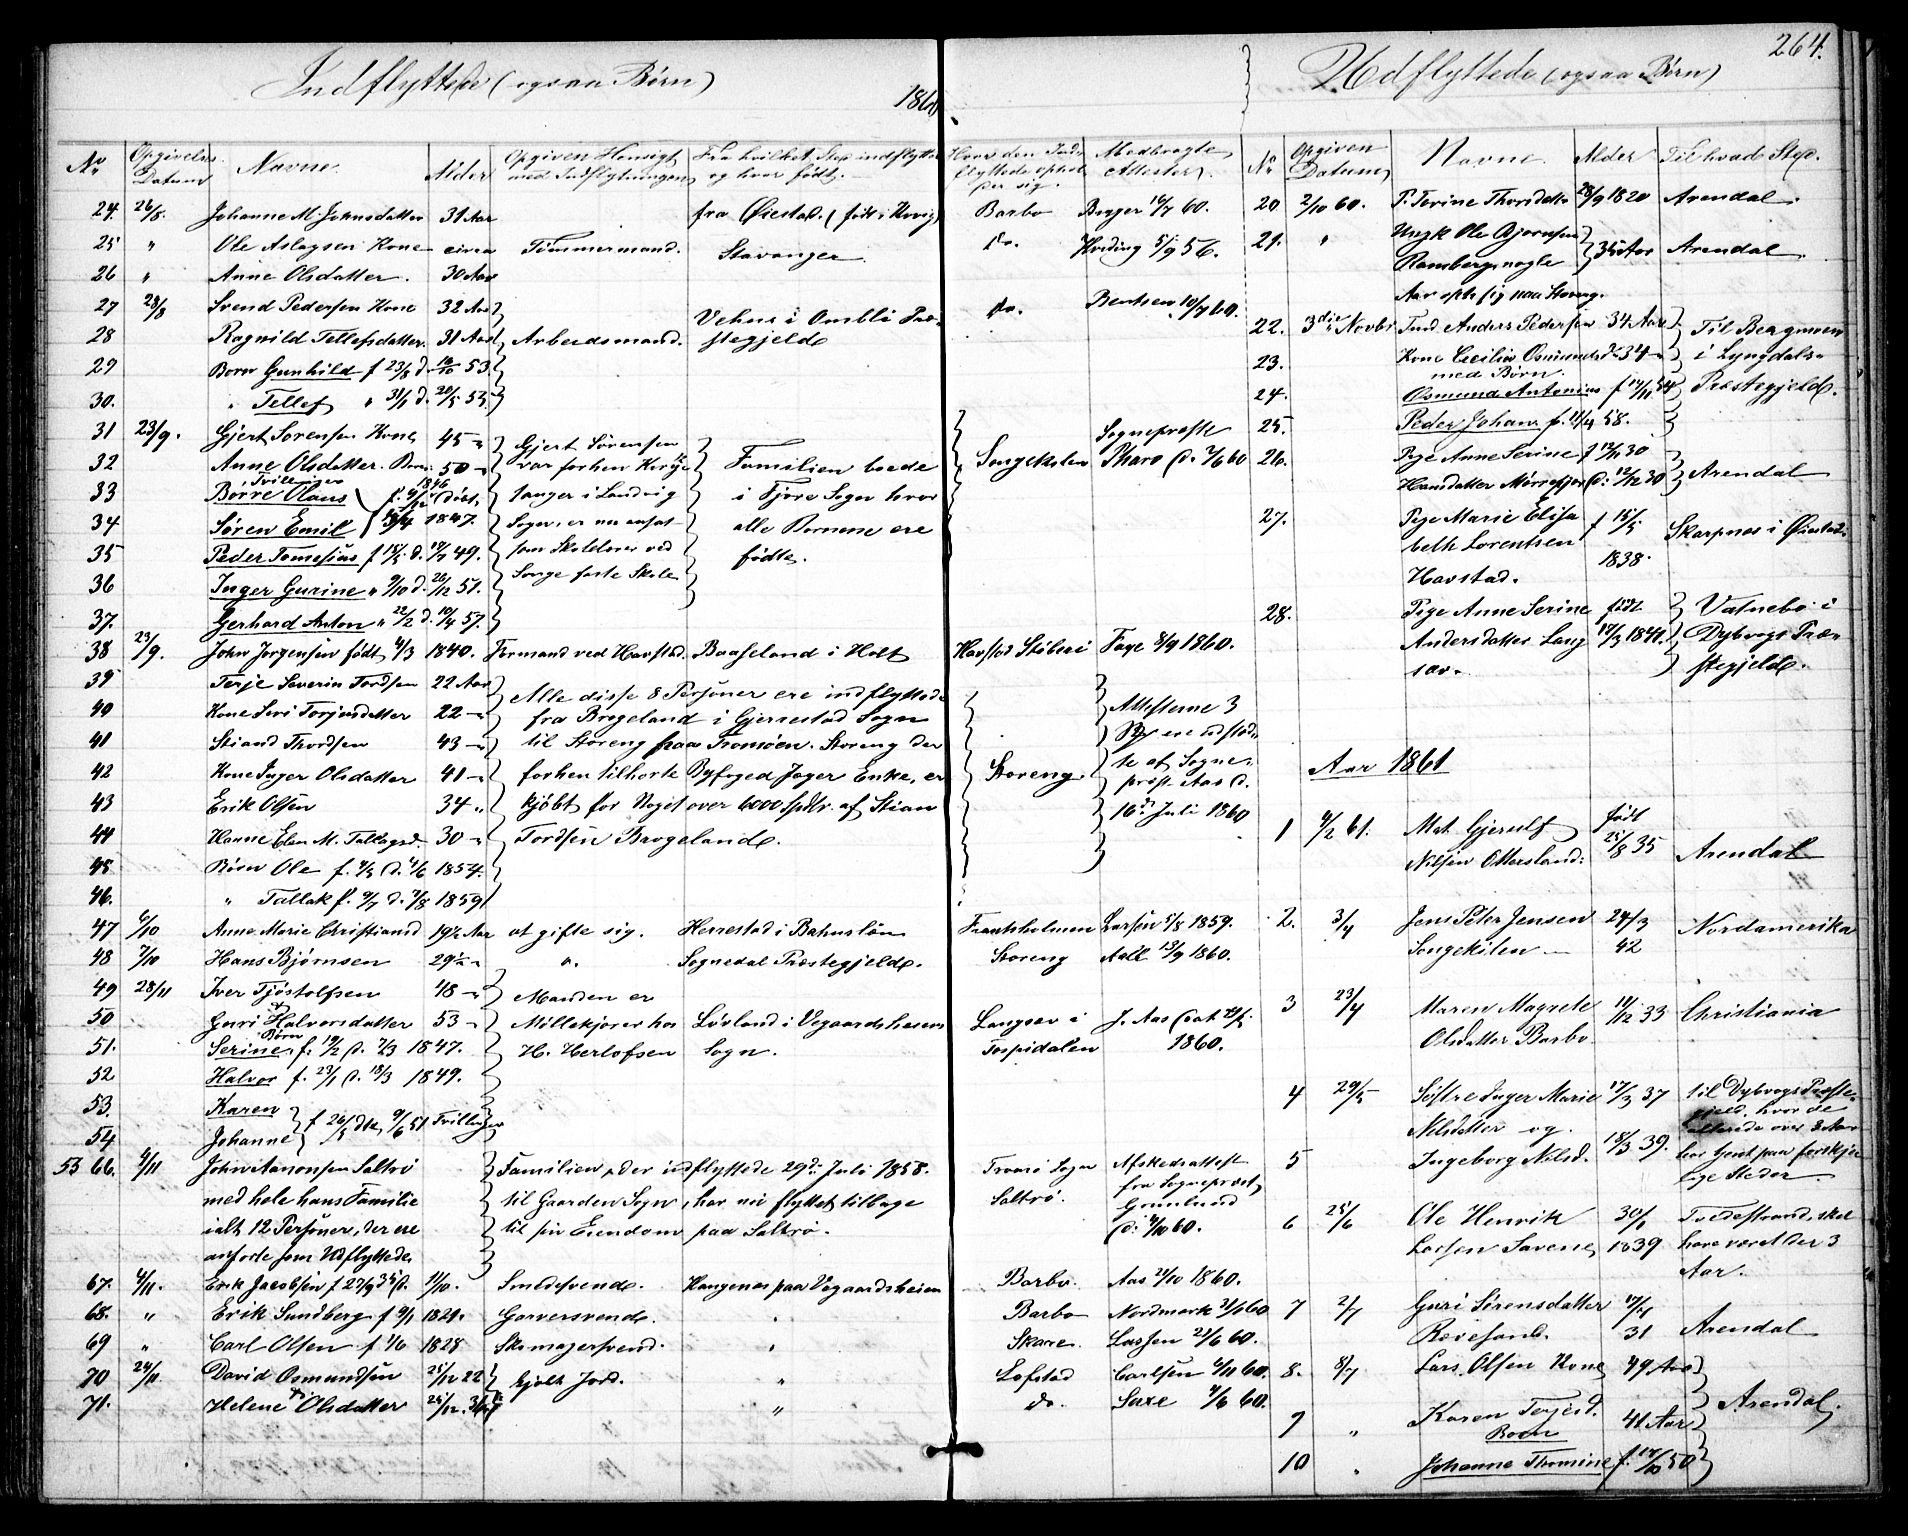 264.
Indflyttede (ogsaa Børn)
1860
Udflyttede (ogsaa Børn)
No Opgivelses Datum Navne. Alder Opgiven Hensigt med Indflytningen Fra hvilket Sted indflyttet og hvor født. Hvor den Indflyttede opholder sig. Medbragte Attester.
24. 26/8. Johanne M. Johnsdatter 31 Aar fra Øiestad. (født i Hovig) Barbo Buger 16/7 60.
25 " Ole Aslagsen Kone circa Tømmermand. Stavanger. do. Hviding 5/9 56.
26 " Anne Olsdatter. 30 Aar
27 28/8 Svend Pedersen Kone 32 Aar Vehus i Ombli Præ- do. Bentsen 10/7 60.
28 Ragnild Tellefsdatter. 31 Aar Arbeidsmand. stegjeld
29 Børn Gunhild f 23/8 d. 16/10 53
30. " Tellef " 31/1 d. 20/5 55.
31 23/9. Gjert Sørensen Kone 45 " Gjert Sørensen
32 Anne Olsdatter. Børn. 50 " var forhen Kirke Familien boede Songekilen Sogneprest Tharo d. 7/6 60
Tvillinger 1846
33 Børre Olaus f. 9/12 døbt. sanger i Landvig i Fjære Sogn hvor
34 Søren Emil 18/4 1847. Sogn, er nu ansat alle Børnene ere
35 Peder Tomesius f 15/5 d. 17/7 49. som Skolelærer ved fødte.
36 Inger Gurine " 9/10 d. 26/12 51. Songe faste Skole
37. Gerhard Anton " 22/2 d. 19/4 57.
38 23/9. John Jørgensen født 4/3 1840. Formand ved Havstad. Baaseland i Holt Havstad Støberi Faye 8/9 1860.
39 Terje Severin Tordsen 22 Aar Alle disse 8 Personer ere indflyttede
40 Kone Siri Torjusdatter 22 " fra Brøgeland i Gjerrestad Sogn Attesterne 3
41 Stiand Thordsen 43 " til Støreng paa Tromøen. Støreng der ere udsted-
42 Kone Inger Olsdatter 41 " forhen tilhørte Byfoged Jøger Enke, er Støreng. te af Sogne-
prest Aas d.
43 Erik Olsen 34 " kjøbt for Noget over 6000 Spdlr. af Stian 16de Juli 1860
44 Hanne Elen M. Tallagsd. 30 " Tordsen Brøgeland.
45 Børn Ole f. 4/5 d. 4/6 1854.
46. " Tallak f. 9/7 d. 7/8 1859
47 6/10 Anne Marie Christiansd 19½ Aar at gifte sig. Herrestad i Bahuslän Frankholmen Larsen 5/8 1859.
48 7/10 Hans Bjørnsen 29½ " ". Sognedal Præstegjeld. Støreng Aall 13/9 1860.
49 28/11 Iver Tjøstolfsen 48 " Manden er
50 Guri Halvorsdatter 53 " Møllekjører hos Løvland i Vegaardsheiens Langsev i J. Aas Dat
Børn
51. Serine f. 19/2 d. 7/3 1847. H. Herlofsen Sogn. Hospidalen 1860.
52 Halvor f. 23/1 d. 18/3 1849.
53. Karen
f 26/5 dbt. 9/6 51 Tvillinger
54 Johanne
55 66. 4/11 Saltrø Familien, der indflyttede 29de Juli 1858. Tromø Sogn Afskedsattest
med hele hans Familie til Gaarden Sogn, har nu flyttet tilbage Saltrø. fra Sogneprest
ialt 12 Personer, der ere til sin Eiendom paa Saltrø. Grønlund
anførte som Udflyttede d. 4/10 60.
67. 4/11. Erik Jacobsen f 27/9 35 d. 11/10. Smedesvend. Hangenes paa Vegaardsheien Barbo. Aas 21/10 1860.
68. " Erik Sundberg f 9/1 1821. Garversvend. " Barbo Nordmark 31/8 60
69 " Carl Olsen f. 1/6 1828 Skomagersvend. " Skare. Lassen 25/6 60.
70 24/11 David Osmundsen 25/12 22 kjøbt Jord. " Lofstad Carlsen 6/11 60.
71. Helene Olsdatter 24/12. " do. Saxe 4/6 60.
No Opgiven Datum Navne. Alder Til hvad Sted.
20 2/10 60. P. Terine Thorsdatter 28/9 1820 Arendal.
21. " Ungk Ole Bjørnsen
Ramberg nogle 35 Aar Arendal
Aar opth sig paa Støreng.
22. 3die Novbr Tind. Anders Pedersen 34 Aar Til Bergmoen
23. Kone Cecilia Osmundsd. 34 " i Lyngdals-
med Børn.
24. Osmund Antonius f 14/11 54 Præstegjeld.
25. Peder Johan f. 11/4 58.
26. Pige Anne Serine f 17/11 30
Hansdatter Mørrefjær d. 12/12 30 Arendal
27. Pige Marie Elisa f 15/5
beth Lorentsen Skarpnes i Øiestad
Havstad. 1838.
28. Pige Anne Serine født Vatnebo i
Andersdatter Lang 18/3 1841. Dybvogs Præ-
sæv. stegjeld.
Aar 1861
1 4/2 61. Mat. Gjerulf født 25/8 35
Nilsen Ottersland. Arendal
2. 3/4 Jens Peter Jensen 24/3 Nordamerika
Songekilen 42
3 23/4 Maren Magrete 11/12 33 Christiania
Olsdatter Barbo
4 29/5 Søstre Inger Marie 17/3 37 til Dybvogs Præste-
gjeld, hvor de
Nilsdatter og allerede over 3 Aar
5 Ingeborg Nilsd. 18/3 39. har tjent paa forskjel-
lige Steder
6 25/6 Ole Henrik 30/1 Tvedestrand, skal
Larsen Savenes 1839 have været der 3
Aar.
7 2/7 Guri Sørensdatter
Revesand. 31 Arendal
8. 8/7 Lars Olsen Kone 49 Aar
9 " Karen Terjesd. 41 Aar Arendal.
Børn
10 " Johanne Thomine f. 18/10 50